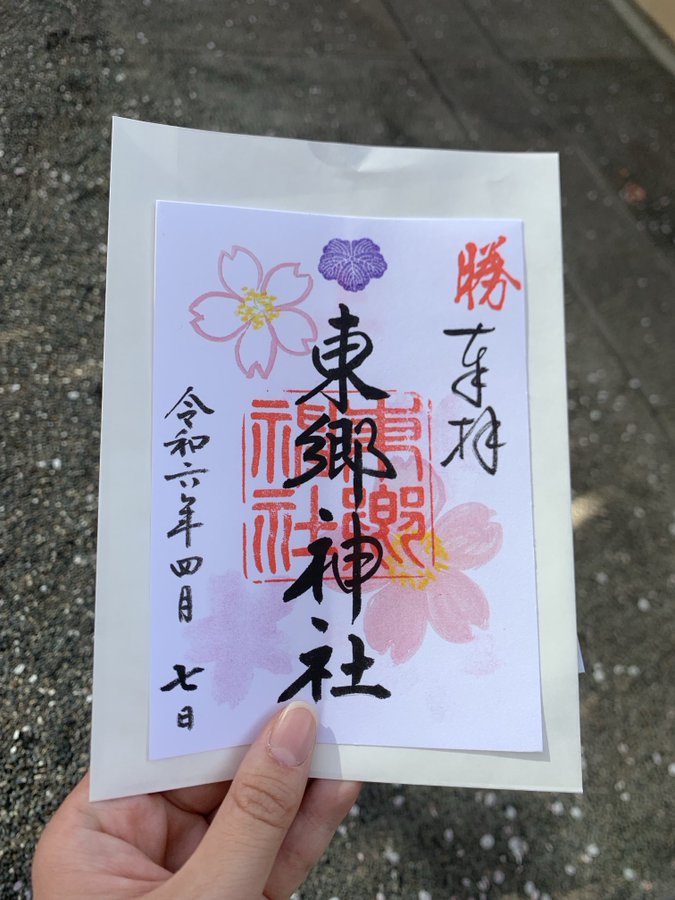 勝
奉拝
東郷神社
東郷
神社
令和六年四月七日